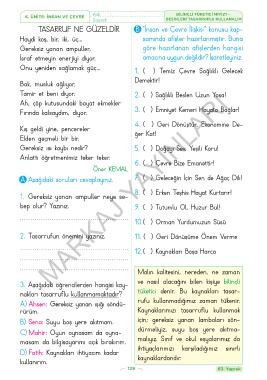 4. ÜNİTE: İNSAN VE ÇEVRE
BİLİNÇLİ TÜKETİCİYİZ -
BESİNLERİ TASARRUFLU KULLANALIM
TASARRUF NE GÜZELDİR
Haydi koş, bir, iki, üç...
Gereksiz yanan ampuller,
İsraf etmeyin enerjiyi diyor.
Onu yeniden sağlamak güç...
Bak, musluk ağlıyor,
Tamir et beni diyor.
Ah, çöp kutusundaki bayat ekmekler
Fırında kalsaydım, diyor.
Kış geldi yine, pencereler
Elden geçmeli bir bir.
Gereksiz ısı kaybı nedir?
Anlattı öğretmenimiz teker teker.
Öner KEMAL
A Aşağıdaki soruları cevaplayınız.
1. Gereksiz yanan ampuller neye sebep
olur? Yazınız.
2. Tasarrufun önemini yazınız.
3. Aşağıdaki öğrencilerden hangisi kaynakları
tasarruflu kullanmamaktadır?
A) Ahsen: Gereksiz yanan ışığı söndürürüm.
B) Sena: Suyu boş yere akıtmam.
C) Mahir: Oyun oynasam da oynamasam
da bilgisayarımı açık bırakırım.
D) Fatih: Kaynakları ihtiyacım kadar
kullanırım.
B "İnsan ve Çevre İlişkisi" konusu kapsamında
afişler hazırlanmıştır. Buna
göre hazırlanan afişlerden hangisi
amacına uygun değildir? İşaretleyiniz.
1. ( ) Temiz Çevre Sağlıklı Gelecek
Demektir!
2. ( ) Sağlıklı Beslen Uzun Yaşa!
3. ( ) Emniyet Kemeri Hayata Bağlar!
4. ( ) Geri Dönüştür, Ekonomine Değer
Kat!
5. ( ) Doğayı Sev, Yeşili Koru!
6. ( ) Çevre Bize Emanettir!
7. ( ) Geleceğin İçin Sen de Ağaç Dik!
8. ( ) Erken Teşhis Hayat Kurtarır!
9. ( ) Tutumlu Ol, Huzur Bul!
10. ( ) Orman Yurdumuzun Süsü
11. ( ) Geri Dönüşüme Önem Verme
12. ( ) Kaynakları Boşa Harca
Malın kalitesini, nereden, ne zaman
ve nasıl alacağını bilen kişiye bilinçli
tüketici denir. Bu kaynakları tasarruflu
kullanmadığımız zaman tükenir.
Kaynaklarımızı tasarruflu kullanmak
için; gereksiz yanan lambaları söndürmeliyiz,
suyu boş yere akıtmamalıyız.
Sınıf ve okul eşyalarımız da
ihtiyaçlarımızı karşıladığımız sınırlı
kaynaklardandır.
MARKAJ YAYINLARI
129
63. Yaprak